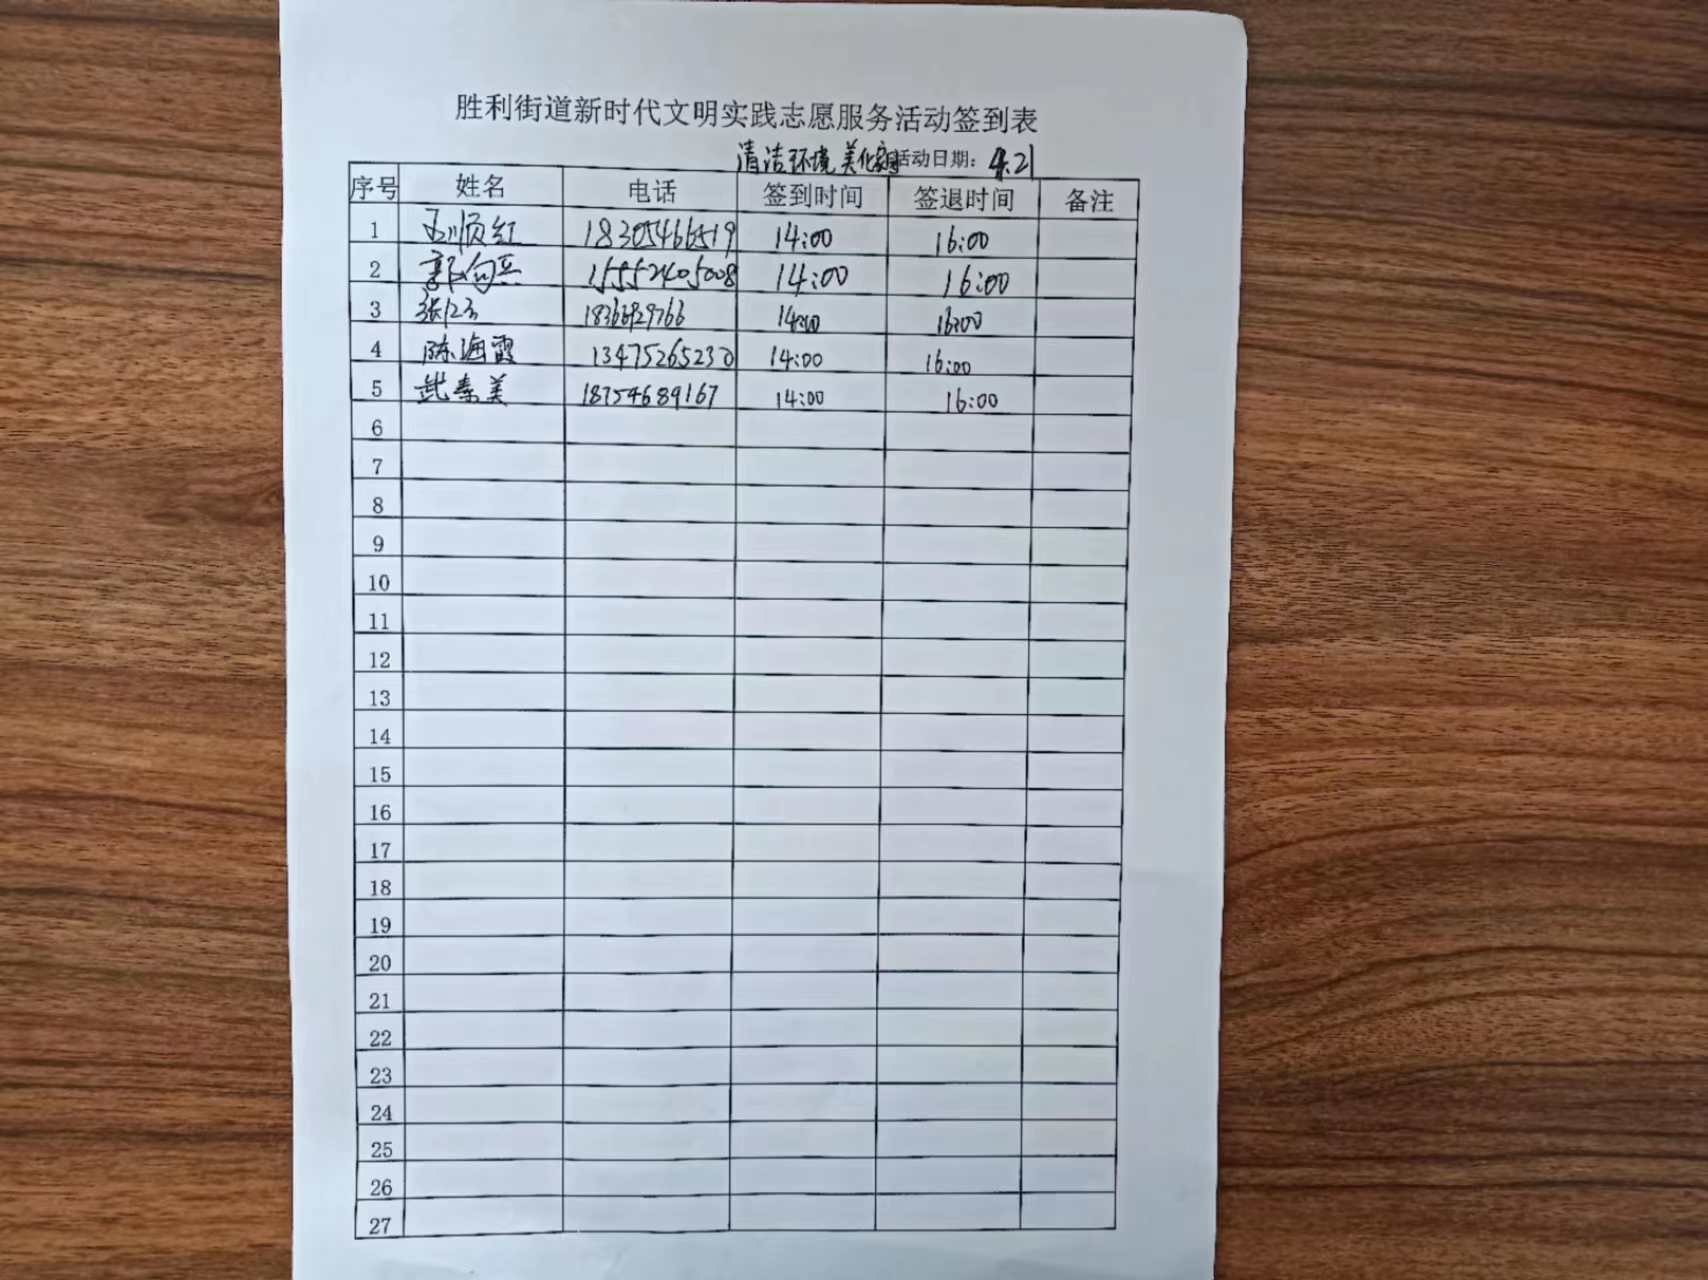 胜利街道新时代文明实践志愿服务活动签到表
清洁环境 美化家园 活动日期: 4.21
序号 姓名 电话 签到时间 签退时间 备注
1 顺红 18305466519 14:00 16:00
2 郭向兵 15552405008 14:00 16:00
3 张 14:00 16:00
4 陈海霞 13475265230 14:00 16:00
5 武秦美 18754689167 14:00 16:00
6
7
8
9
10
11
12
13
14
15
16
17
18
19
20
21
22
23
24
25
26
27